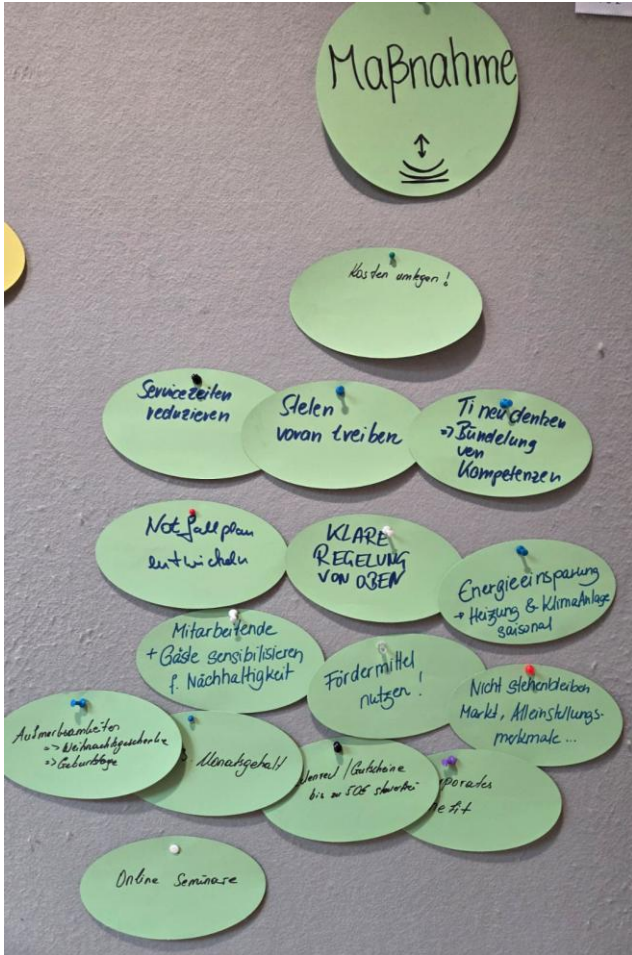 Maßnahme
Kosten umlegen!
Servicezeiten
reduzieren
Stelen
voran treiben
Ti neu denken
=> Bündelung
von
Kompetenzen
Notfallplan
entwickeln
KLARE
REGELUNG
VON OBEN
Energieeinsparung
→ Heizung & KlimaAnlage
saisonal
Mitarbeitende
+ Gäste sensibilisieren
f. Nachhaltigkeit
Fördermittel
nutzen!
Nicht stehenbleiben
Markt, Alleinstellungs-
merkmale...
Aufmerksamkeiten
=> Weihnachtsgeschenke
=> Geburtstage
Monatsgehalt
/Gutscheine
bis zu 50€ steuerfrei
porates
efit
Online Seminare